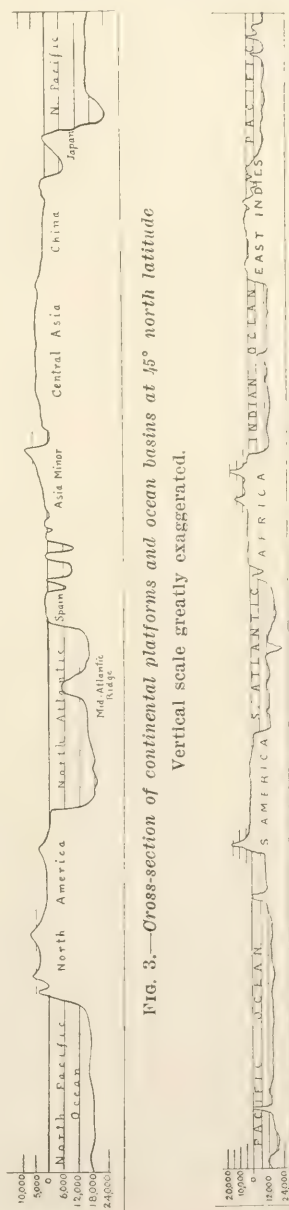 10,000
5,000
0
6,000
12,000
18,000
24,000
North Pacific
Ocean
North America
North Atlantic
Mid-Atlantic
Ridge
Spain
Asia Minor
Central Asia
China
Japan
N. Pacific
FIG. 3.—Cross-section of continental platforms and ocean basins at 45° north latitude
Vertical scale greatly exaggerated.
20,000
10,000
0
12,000
24,000
PACIFIC OCEAN
S AMERICA
S. ATLANTIC
AFRICA
INDIAN OCEAN
EAST INDIES
PACIFIC